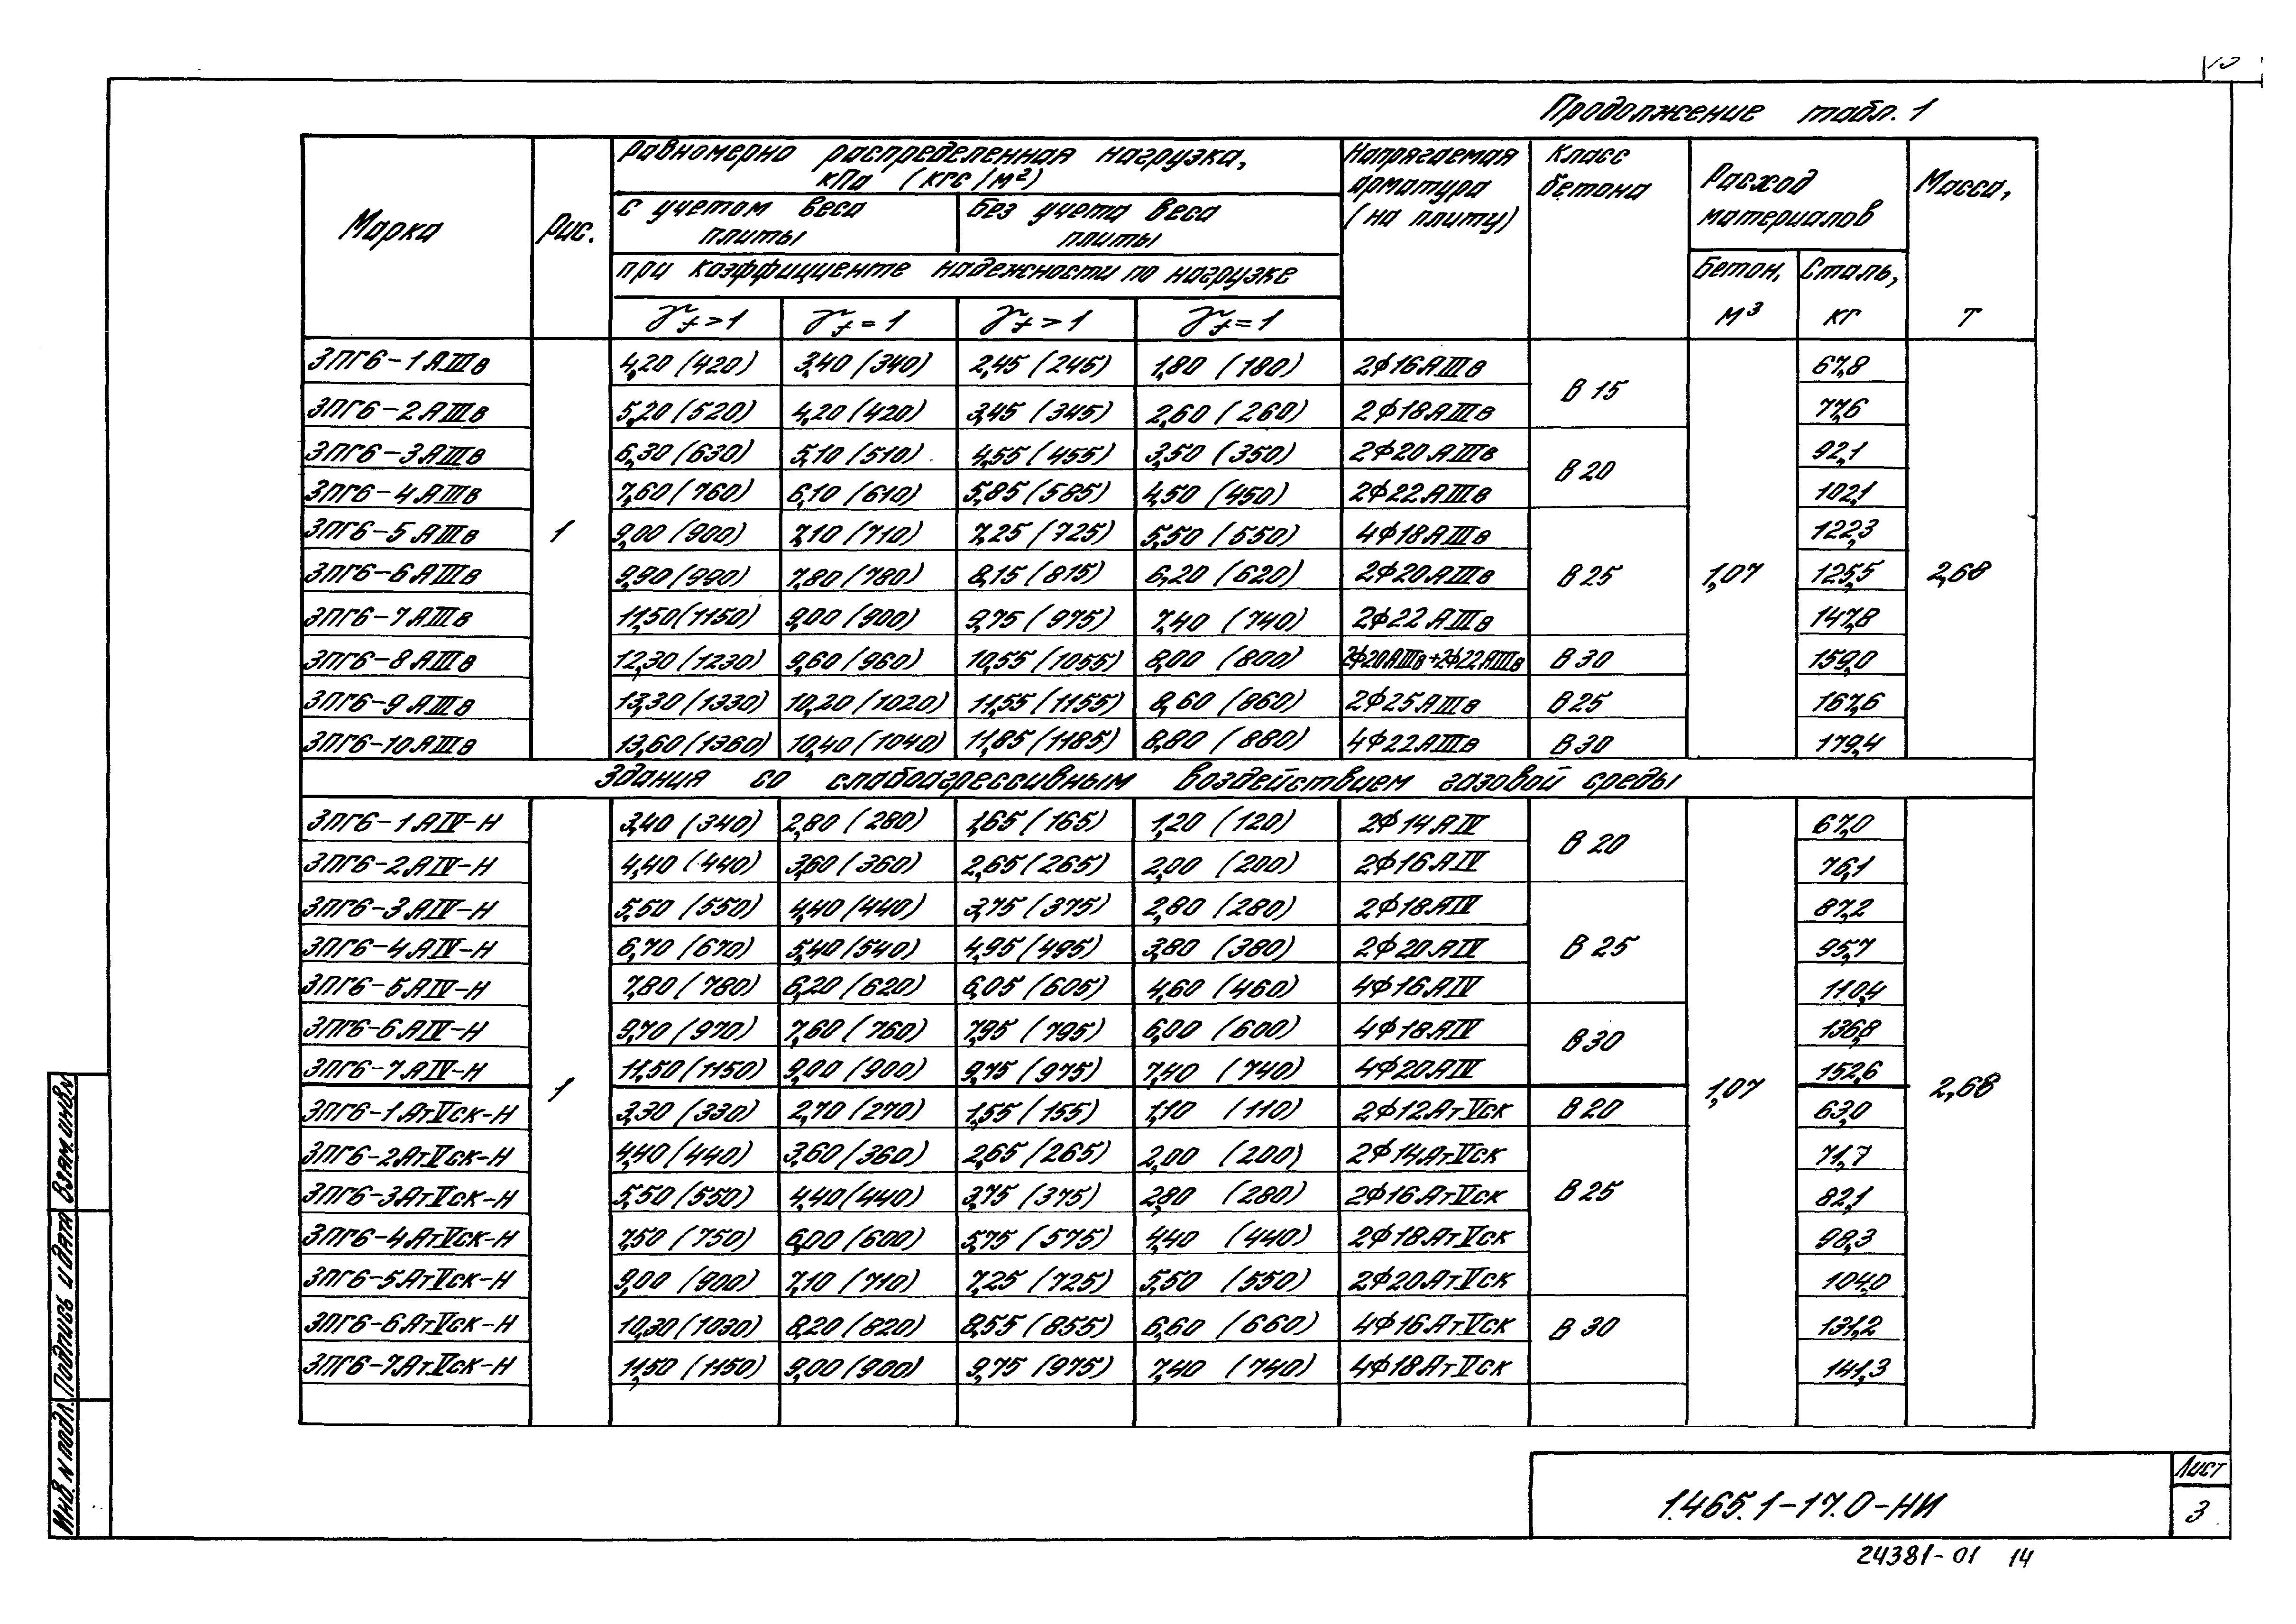 Продолжение табл. 1
Марка Рис. Равномерно распределенная нагрузка, кПа (кгс/м²) Напрягаемая арматура (на плиту) Класс бетона Расход материалов Масса, т
с учетом веса плиты Без учета веса плиты
при коэффициенте надежности по нагрузке Бетон, м³ Сталь, кг
γf>1 γf=1 γf>1 γf=1
3ПГ6-1АIIIв 4,20 (420) 3,40 (340) 2,45 (245) 1,80 (180) 2ф16АIIIв В 15 67,8
3ПГ6-2АIIIв 5,20 (520) 4,20 (420) 3,45 (345) 2,60 (260) 2ф18АIIIв 77,6
3ПГ6-3АIIIв 6,30 (630) 5,10 (510) 4,55 (455) 3,50 (350) 2ф20АIIIв В 20 92,1
3ПГ6-4АIIIв 7,60 (760) 6,10 (610) 5,85 (585) 4,50 (450) 2ф22АIIIв 102,1
3ПГ6-5АIIIв 1 9,00 (900) 7,10 (710) 7,25 (725) 5,50 (550) 4ф18АIIIв 122,3
3ПГ6-6АIIIв 9,90 (990) 7,80 (780) 8,15 (815) 6,20 (620) 2ф20АIIIв В 25 1,07 125,5 2,68
3ПГ6-7АIIIв 11,50 (1150) 9,00 (900) 9,75 (975) 7,40 (740) 2ф22АIIIв 147,8
3ПГ6-8АIIIв 12,30 (1230) 9,60 (960) 10,55 (1055) 8,00 (800) 2ф20АIIIв+2ф22АIIIв В 30 159,0
3ПГ6-9АIIIв 13,30 (1330) 10,20 (1020) 11,55 (1155) 8,60 (860) 2ф25АIIIв В 25 167,6
3ПГ6-10АIIIв 13,60 (1360) 10,40 (1040) 11,85 (1185) 8,80 (880) 4ф22АIIIв В 30 179,4
Здания со слабоагрессивным воздействием газовой среды
3ПГ6-1АIV-Н 3,40 (340) 2,80 (280) 1,65 (165) 1,20 (120) 2ф14АIV В 20 67,0
3ПГ6-2АIV-Н 4,40 (440) 3,60 (360) 2,65 (265) 2,00 (200) 2ф16АIV 76,1
3ПГ6-3АIV-Н 5,50 (550) 4,40 (440) 3,75 (375) 2,80 (280) 2ф18АIV 87,2
3ПГ6-4АIV-Н 6,70 (670) 5,40 (540) 4,95 (495) 3,80 (380) 2ф20АIV В 25 95,7
3ПГ6-5АIV-Н 7,80 (780) 6,20 (620) 6,05 (605) 4,60 (460) 4ф16АIV 110,4
3ПГ6-6АIV-Н 9,70 (970) 7,60 (760) 7,95 (795) 6,00 (600) 4ф18АIV В 30 136,8
3ПГ6-7АIV-Н 1 11,50 (1150) 9,00 (900) 9,75 (975) 7,40 (740) 4ф20АIV 1,07 152,6 2,68
3ПГ6-1АтVск-Н 3,30 (330) 2,70 (270) 1,55 (155) 1,10 (110) 2ф12АтVск В 20 63,0
3ПГ6-2АтVск-Н 4,40 (440) 3,60 (360) 2,65 (265) 2,00 (200) 2ф14АтVск 71,7
3ПГ6-3АтVск-Н 5,50 (550) 4,40 (440) 3,75 (375) 2,80 (280) 2ф16АтVск В 25 82,1
3ПГ6-4АтVск-Н 7,50 (750) 6,00 (600) 5,75 (575) 4,40 (440) 2ф18АтVск 98,3
3ПГ6-5АтVск-Н 9,00 (900) 7,10 (710) 7,25 (725) 5,50 (550) 2ф20АтVск 104,0
3ПГ6-6АтVск-Н 10,30 (1030) 8,20 (820) 8,55 (855) 6,60 (660) 4ф16АтVск В 30 131,2
3ПГ6-7АтVск-Н 11,50 (1150) 9,00 (900) 9,75 (975) 7,40 (740) 4ф18АтVск 141,3
Инв. N подл. Подпись и дата Взам. инв. N
1.465.1-17.0-НИ
Лист
3
24381-01 14